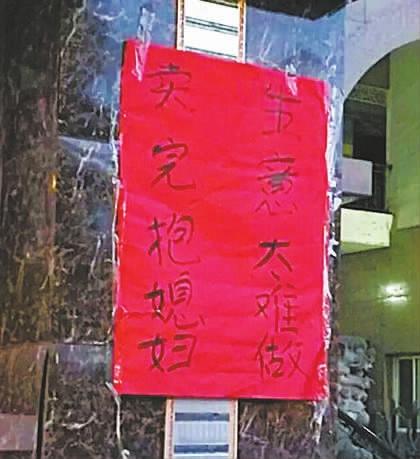 生意太难做
卖完抱媳妇